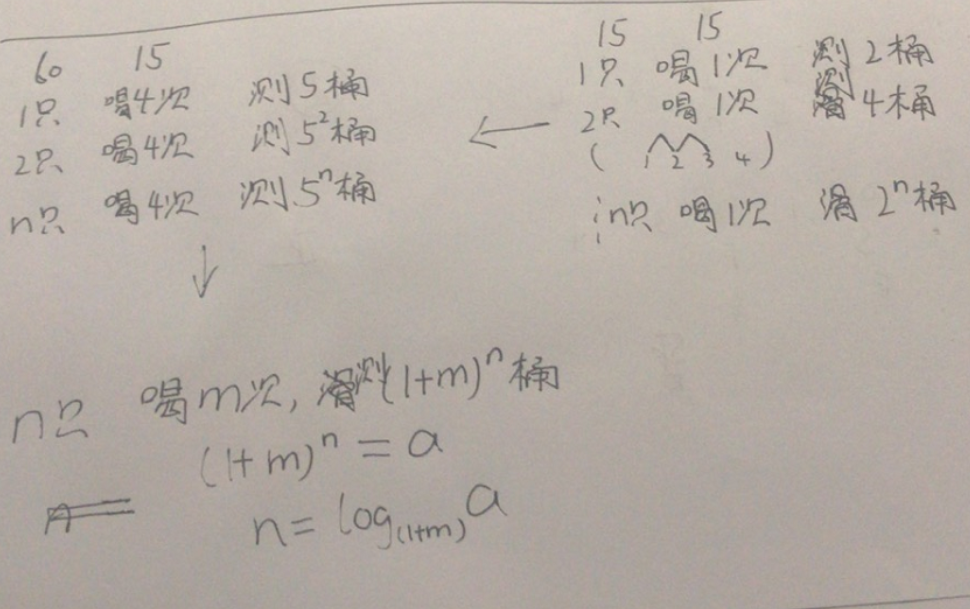 60 15
1只 喝4次 测5桶
2只 喝4次 测5²桶
n只 喝4次 测5ⁿ桶
↓
15 15
1只 喝1次 测2桶
2只 喝1次 测4桶
← ( 1 2 3 4 )
n只 喝1次 2ⁿ桶
n只 喝m次, 测(1+m)ⁿ桶
(1+m)ⁿ = a
n = log(1+m) a